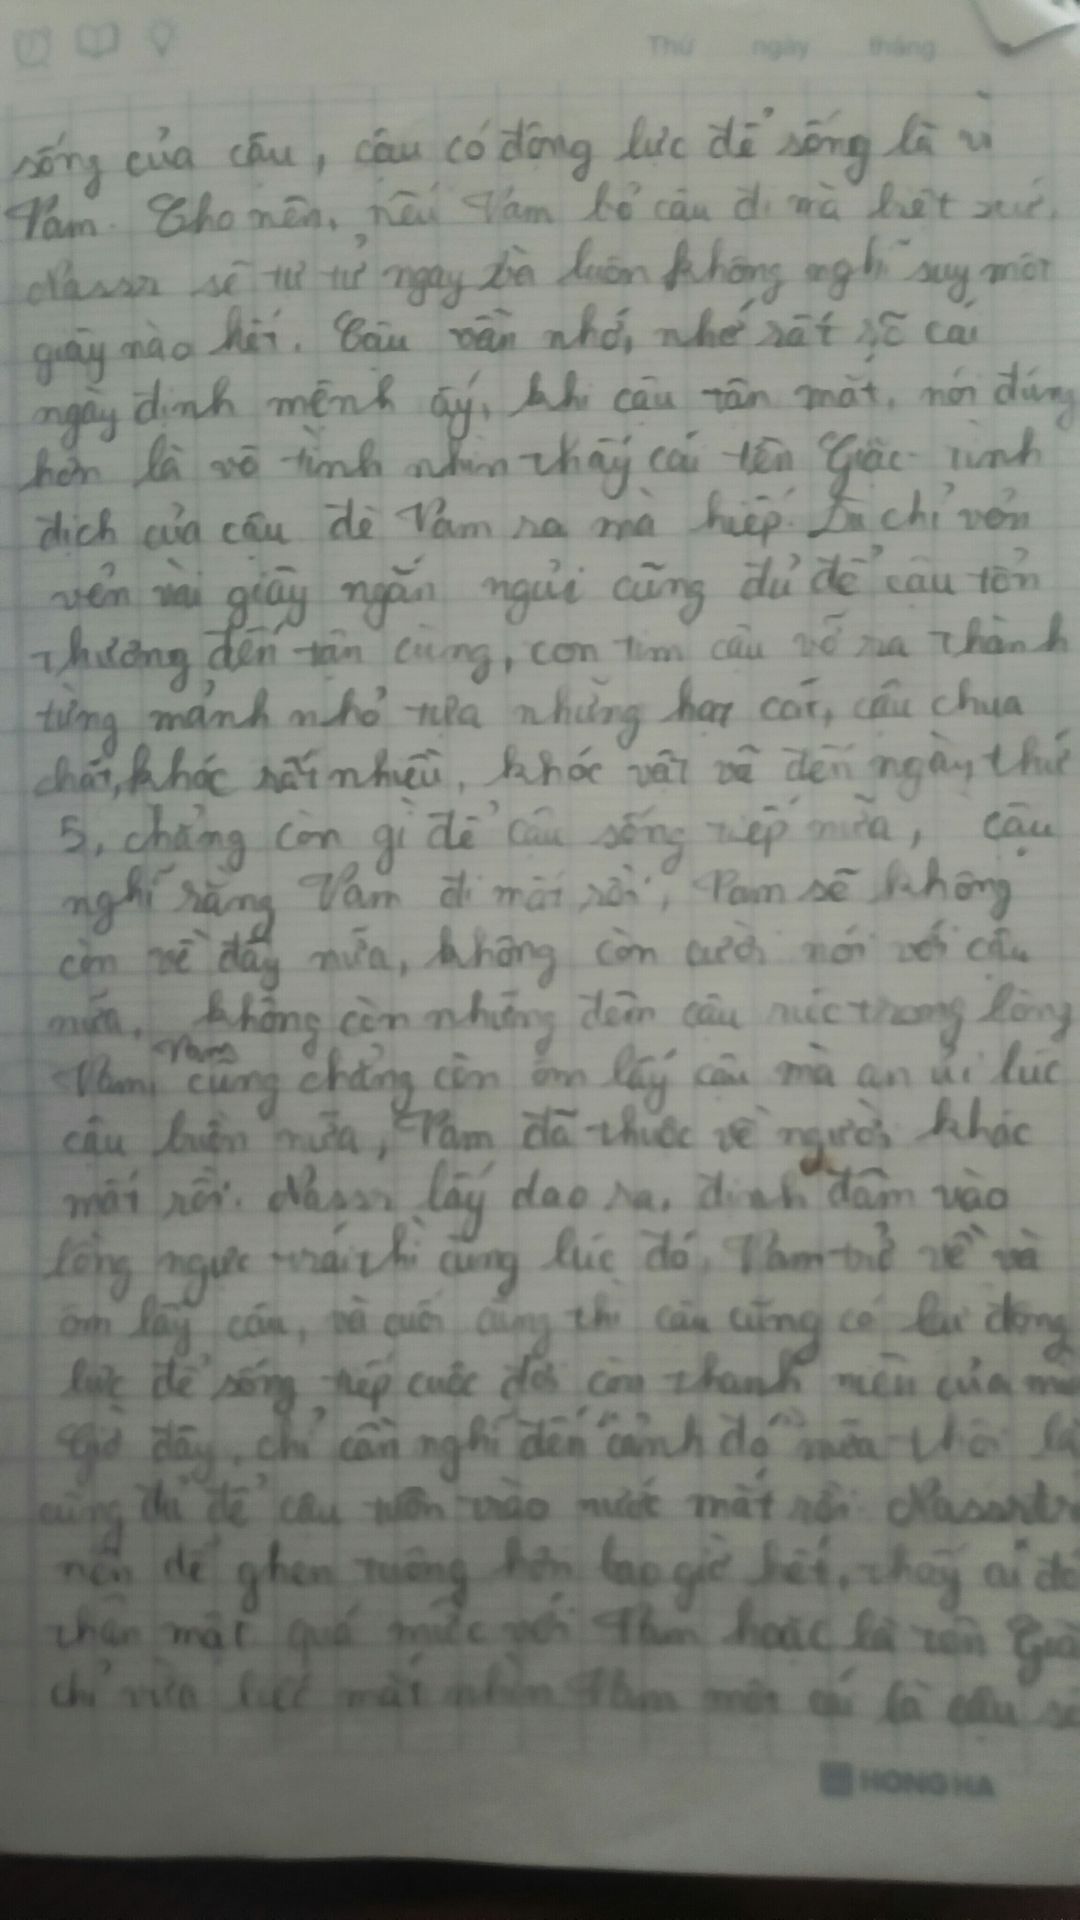 Thứ ngày tháng
sống của cậu, cậu có động lực để sống là vì
Pam. Cho nên, nếu Pam bỏ cậu đi mà biệt xứ,
sẽ tự tử ngay và luôn không nghĩ suy một
giây nào hết. Cậu vẫn nhớ, nhớ rất rõ cái
ngày định mệnh ấy, khi cậu tận mắt, nói đúng
hơn là vô tình nhìn thấy cái tên tình
địch của cậu đè Pam ra mà hiếp. Dù chỉ vỏn
vẻn vài giây ngắn ngủi cũng đủ để cậu tổn
thương đến tận cùng, con tim cậu vỡ ra thành
từng mảnh nhỏ tựa những hạt cát, cậu chua
chát, khóc rất nhiều, khóc vật vã đến ngày thứ
5, chẳng còn gì để cậu sống tiếp nữa, cậu
nghĩ rằng Pam đi mất rồi, Pam sẽ không
còn về đây nữa, không còn cười nói với cậu
nữa, không còn những đêm cậu rúc trong lòng
Pam, Pam cũng chẳng còn ôm lấy cậu mà an ủi lúc
cậu buồn nữa, Pam đã thuộc về người khác
mất rồi. lấy dao ra, định đâm vào
lồng ngực trái thì cùng lúc đó, Pam trở về và
ôm lấy cậu, và cuối cùng thì cậu cũng có động
lực để sống tiếp cuộc đời còn thanh niên của
Giờ đây, chỉ cần nghĩ đến cảnh đó nữa thôi là
cũng đủ để cậu tuôn trào nước mắt rồi
nên dễ ghen tuông hơn bao giờ hết, thấy ai đó
thân mật quá mức với Pam hoặc là tên
chỉ vừa liếc mắt nhìn Pam một cái là cậu sẽ
HONG HA